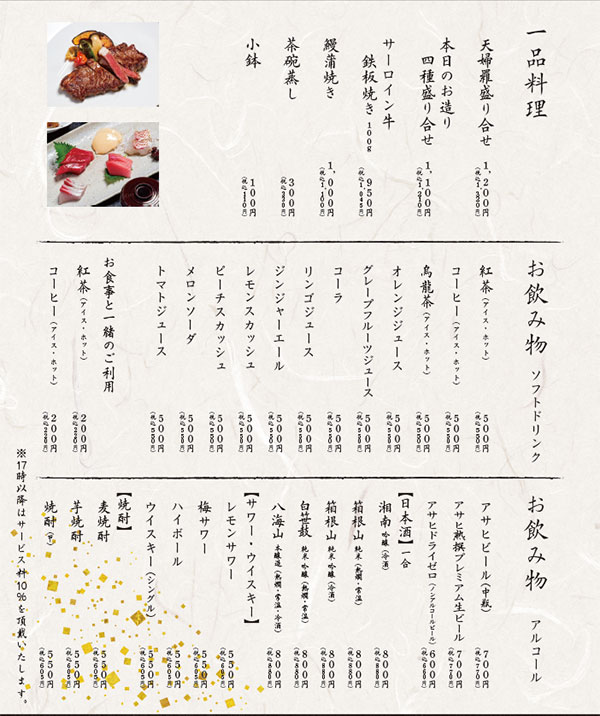 一品料理
天婦羅盛り合せ 1,200円(税込1,320円)
本日のお造り
四種盛り合せ 1,100円(税込1,210円)
サーロイン牛
鉄板焼き 100g 950円(税込1,045円)
鰻蒲焼き 1,000円(税込1,100円)
茶碗蒸し 300円(税込330円)
小鉢 100円(税込110円)
お飲み物 ソフトドリンク
紅茶(アイス・ホット) 500円(税込550円)
コーヒー(アイス・ホット) 500円(税込550円)
烏龍茶(アイス・ホット) 500円(税込550円)
オレンジジュース 500円(税込550円)
グレープフルーツジュース 500円(税込550円)
コーラ 500円(税込550円)
リンゴジュース 500円(税込550円)
ジンジャーエール 500円(税込550円)
レモンスカッシュ 500円(税込550円)
ピーチスカッシュ 500円(税込550円)
メロンソーダ 500円(税込550円)
トマトジュース 500円(税込550円)
お食事と一緒のご利用
紅茶(アイス・ホット) 200円(税込220円)
コーヒー(アイス・ホット) 200円(税込220円)
お飲み物 アルコール
アサヒビール(中瓶) 700円(税込770円)
アサヒ熟撰プレミアム生ビール 700円(税込770円)
アサヒドライゼロ(ノンアルコールビール) 600円(税込660円)
【日本酒】一合
湘南 吟醸(冷酒) 800円(税込880円)
箱根山 純米(熱燗・常温) 800円(税込880円)
箱根山 純米吟醸(冷酒) 800円(税込880円)
白笹鼓 純米吟醸(熱燗・常温) 800円(税込880円)
八海山 本醸造(熱燗・常温・冷酒) 800円(税込880円)
【サワー・ウイスキー】
レモンサワー 550円(税込605円)
梅サワー 550円(税込605円)
ハイボール 550円(税込605円)
ウイスキー(シングル) 550円(税込605円)
【焼酎】
麦焼酎 550円(税込605円)
芋焼酎 550円(税込605円)
焼酎 550円(税込605円)
※17時以降はサービス料10%を頂戴いたします。